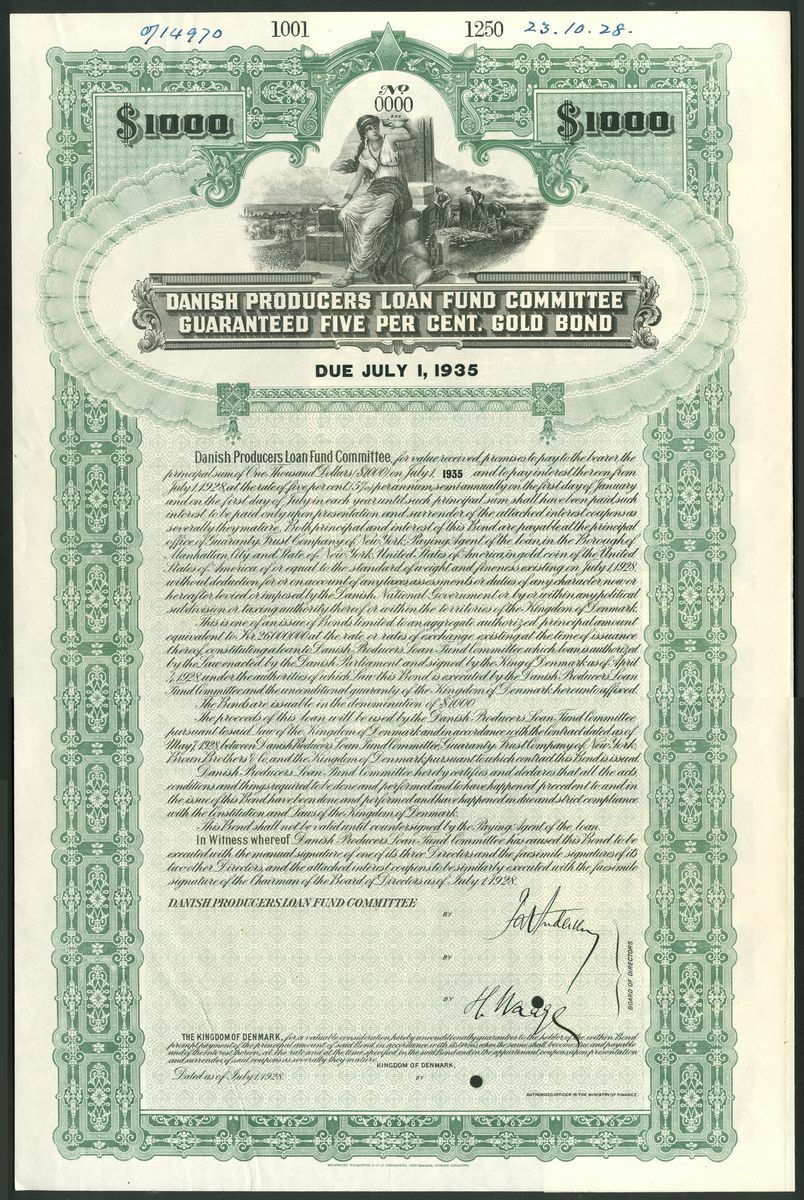 0/14970 1001 1250 23.10.28.
No
0000
$1000 $1000
DANISH PRODUCERS LOAN FUND COMMITTEE
GUARANTEED FIVE PER CENT. GOLD BOND
DUE JULY 1, 1935
Danish Producers Loan Fund Committee, for value received, promises to pay to the bearer the
principal sum of One Thousand Dollars ($1,000) on July 1, 1935 and to pay interest thereon from
July 1, 1928, at the rate of five per cent (5%) per annum, semi annually on the first day of January
and on the first day of July in each year until such principal sum shall have been paid, such
interest to be paid only upon presentation and surrender of the attached interest coupons as
severally they mature. Both principal and interest of this Bond are payable at the principal
office of Guaranty Trust Company of New York, Paying Agent of the loan, in the Borough of
Manhattan, City and State of New York, United States of America, in gold coin of the United
States of America of or equal to the standard of weight and fineness existing on July 1, 1928,
without deduction for or on account of any taxes, assessments or duties of any character now or
hereafter levied or imposed by the Danish National Government or by or within any political
subdivision or taxing authority thereof or within the territories of the Kingdom of Denmark.
This is one of an issue of Bonds limited to an aggregate authorized principal amount
equivalent to Kr. 26,000,000 at the rate or rates of exchange existing at the time of issuance
thereof, constituting a loan to Danish Producers Loan Fund Committee which loan is authorized
by the Law enacted by the Danish Parliament and signed by the King of Denmark as of April
4, 1928, under the authorities of which Law this Bond is executed by the Danish Producers Loan
Fund Committee and the unconditional guaranty of the Kingdom of Denmark hereunto affixed.
The Bonds are issuable in the denomination of $1,000.
The proceeds of this loan will be used by the Danish Producers Loan Fund Committee
pursuant to said Law of the Kingdom of Denmark and in accordance with the Contract dated as of
May 7, 1928, between Danish Producers Loan Fund Committee, Guaranty Trust Company of New York,
Brown Brothers & Co., and the Kingdom of Denmark pursuant to which contract this Bond is issued.
Danish Producers Loan Fund Committee hereby certifies and declares that all the acts
conditions and things required to be done and performed and to have happened precedent to and in
the issue of this Bond have been done and performed and have happened in due and strict compliance
with the Constitution and Laws of the Kingdom of Denmark.
This Bond shall not be valid until countersigned by the Paying Agent of the loan.
In Witness whereof Danish Producers Loan Fund Committee has caused this Bond to be
executed with the manual signature of one of its three Directors and the facsimile signatures of its
two other Directors, and the attached interest coupons to be similarly executed with the facsimile
signature of the Chairman of the Board of Directors as of July 1, 1928.
DANISH PRODUCERS LOAN FUND COMMITTEE
BY
BY
BY H. Waage
BOARD OF DIRECTORS.
THE KINGDOM OF DENMARK, for a valuable consideration hereby unconditionally guarantees to the holder of the within Bond
prompt payment of the principal amount of said Bond, in accordance with its terms when the same shall become due and payable
and of the interest thereon, at the rate and at the time specified in the said Bond and in the appurtenant coupons, upon presentation
and surrender of said coupons as severally they mature.
KINGDOM OF DENMARK,
Dated as of July 1, 1928.
BY
AUTHORISED OFFICER IN THE MINISTRY OF FINANCE.
BRADBURY, WILKINSON & Co. LD ENGRAVERS, NEW MALDEN, SURREY, ENGLAND.